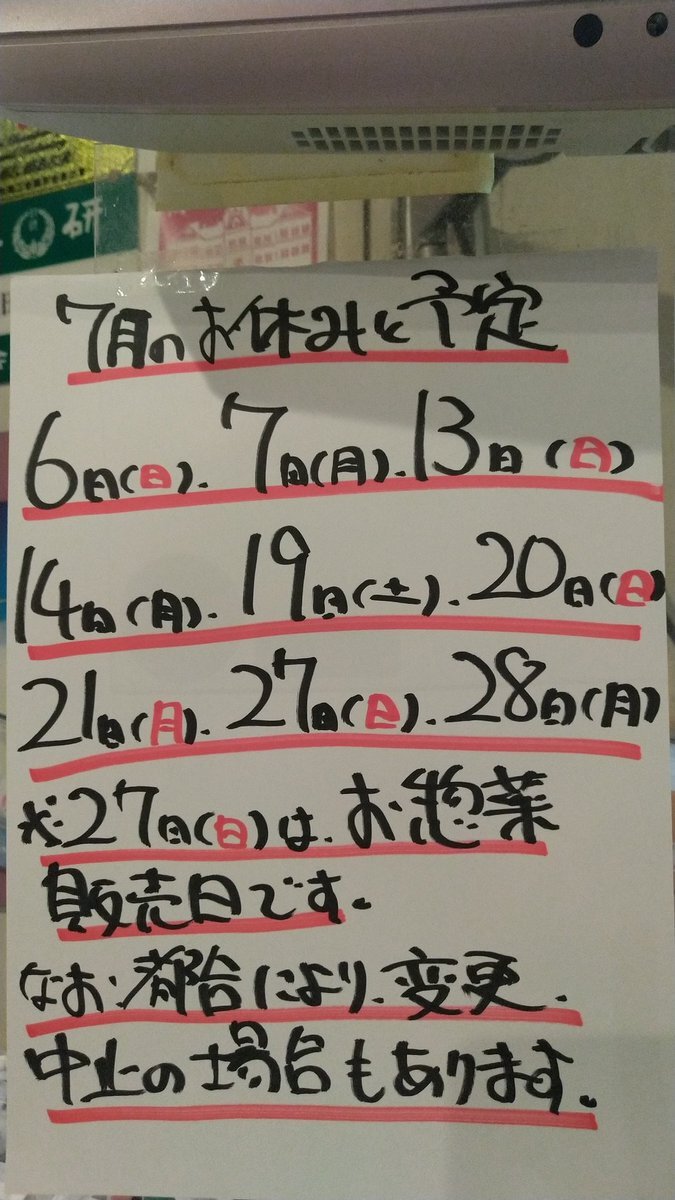 研
7月のお休みと予定
6日(日).7日(月).13日(日)
14日(月).19日(土).20日(日)
21日(月).27日(日).28日(月)
※27日(日)は、お惣菜
販売日です。
なお、都合により、変更、
中止の場合もあります。